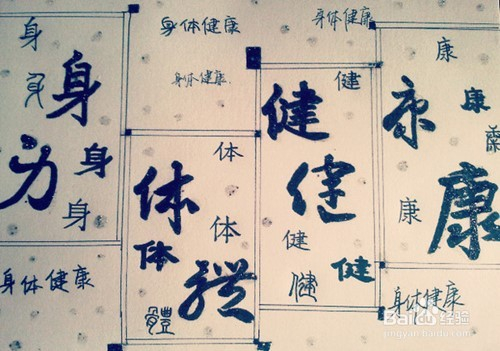 身
身
身
身
身
身
身体健康
身体健康
身体健康
身体健康
体
体
体
体
體
體
健
健
健
健
健
健
康
康
康
康
康
康
身体健康
Baidu经验
jingyan.baidu.com